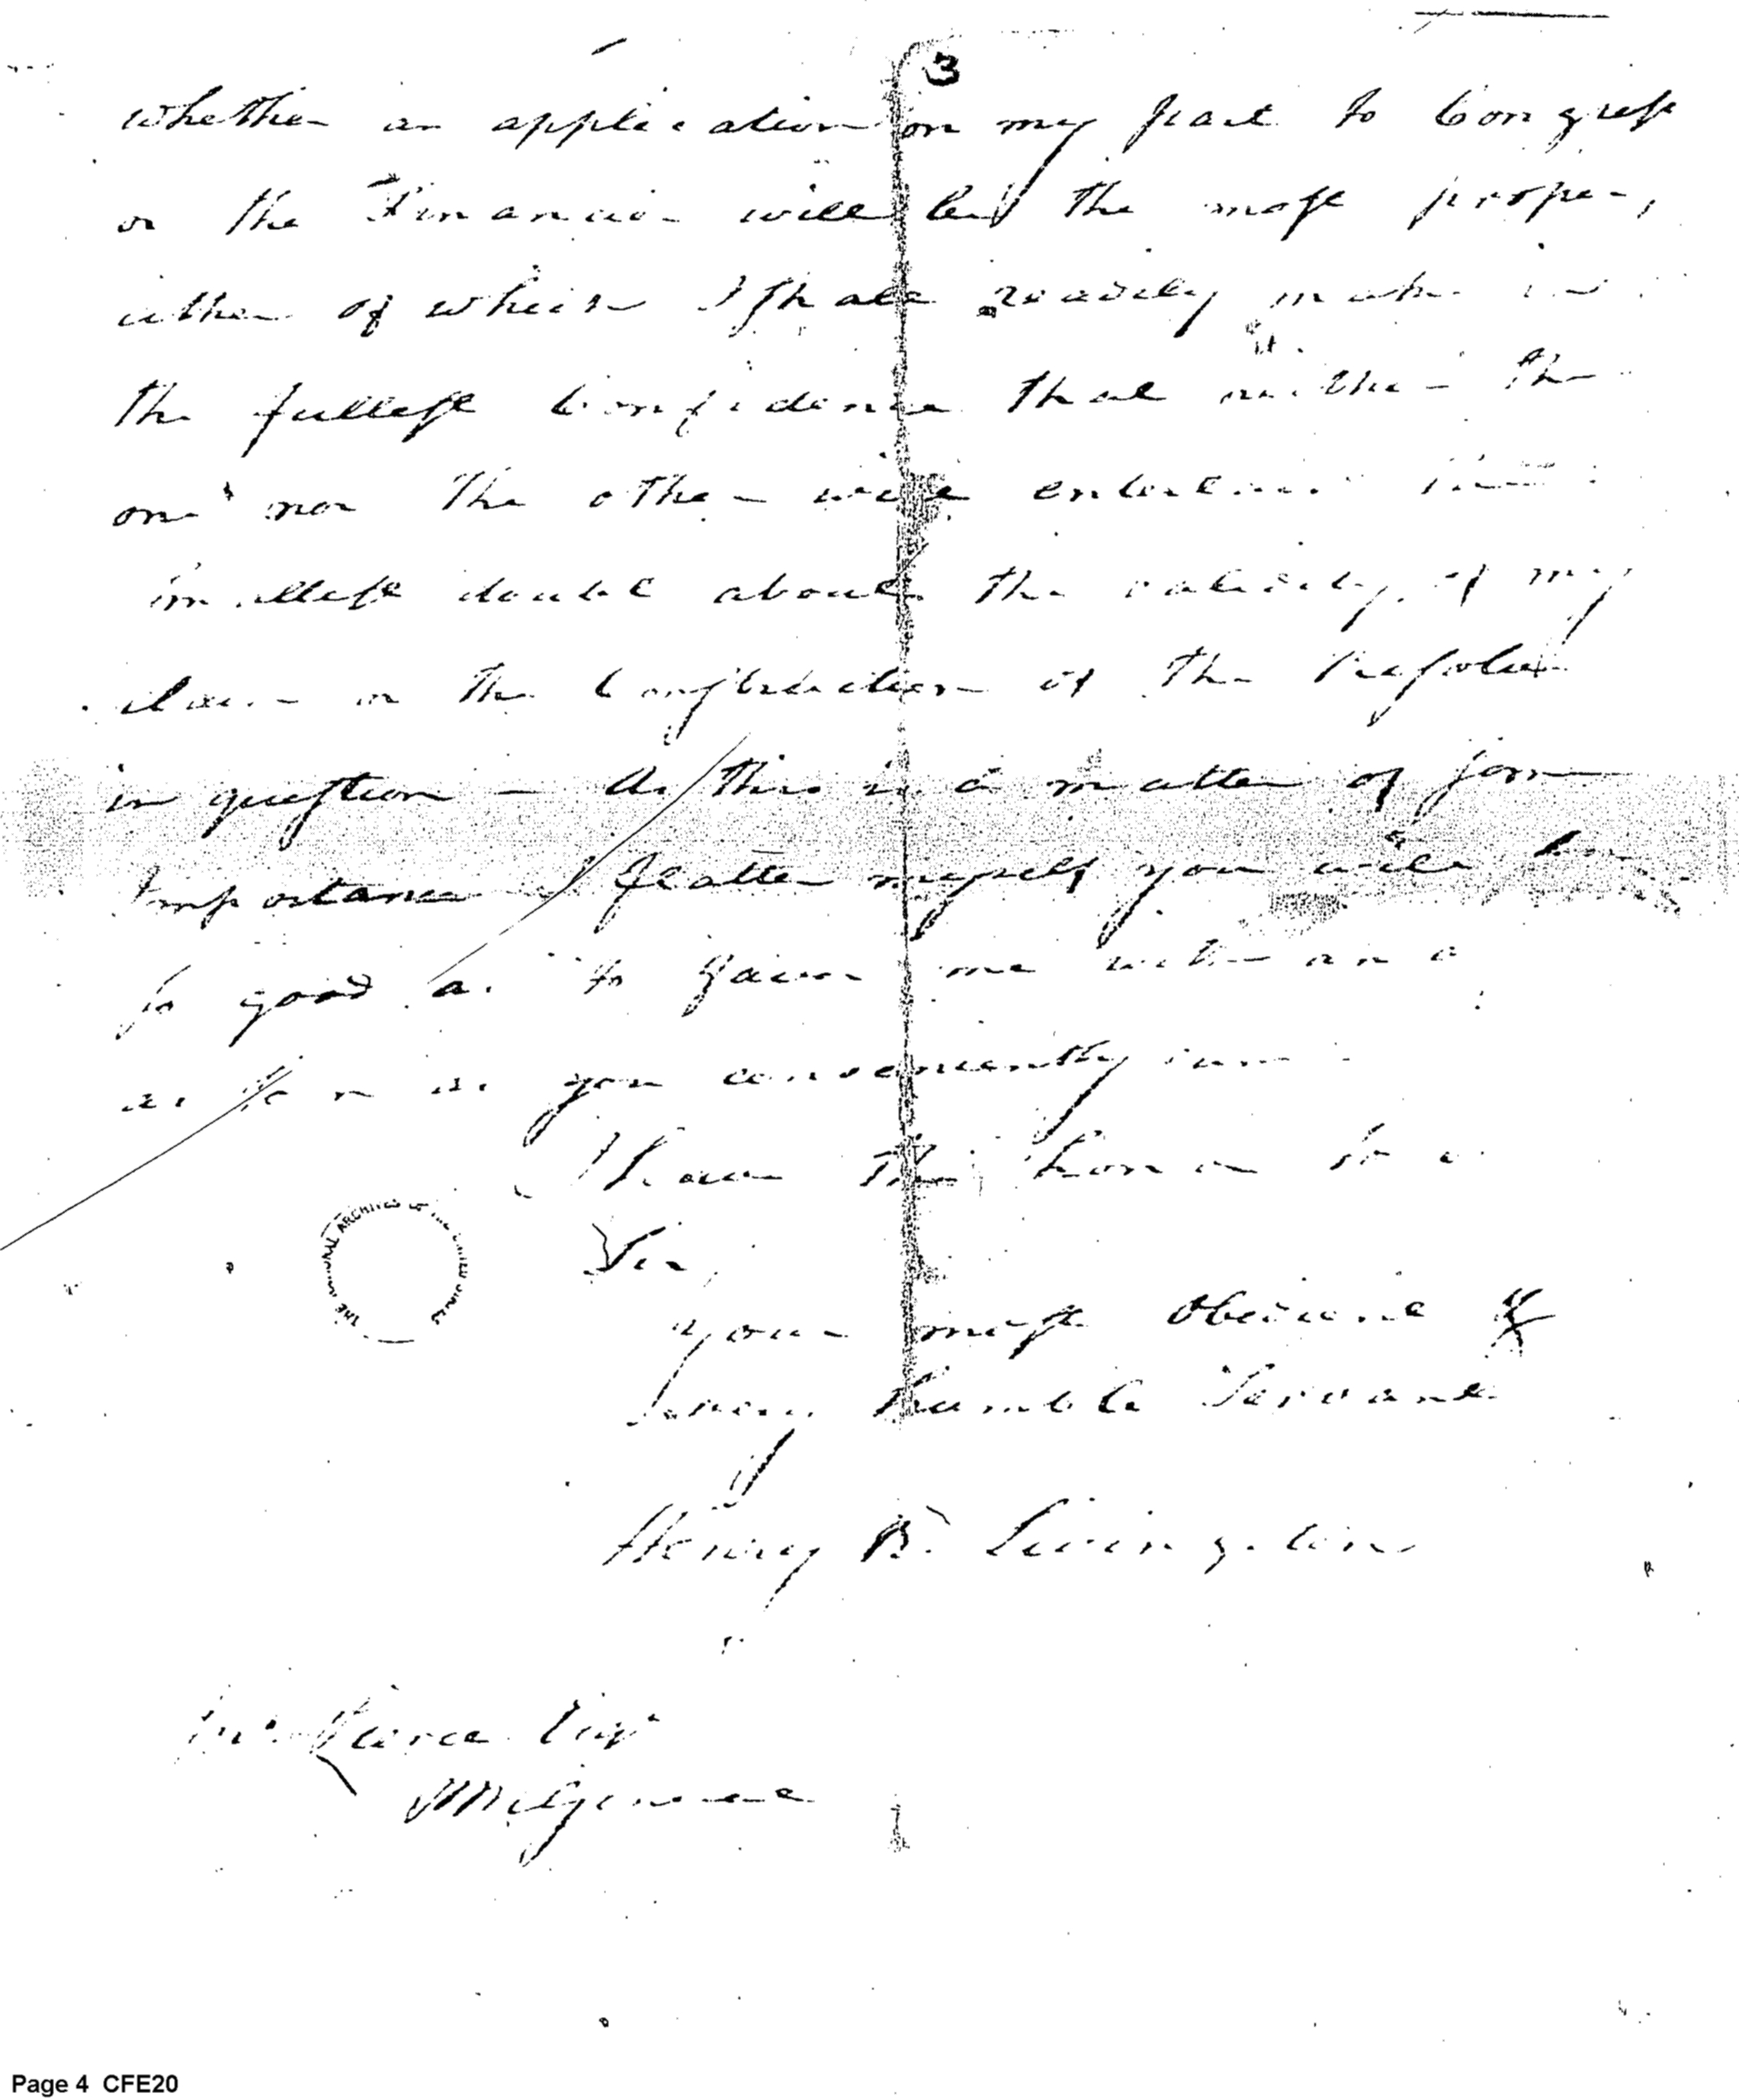 3
whether an application on my part to Congress
or the Financier will be the most proper,
either of which I shall readily make in
the fullest Confidence that neither the
one nor the other will entertain the
smallest doubt about the validity of my
claim or the Construction of the Resolve
in question — As this is a matter of some
Importance I flatter myself you will be
so good as to favor me with an
as soon as you conveniently can
I have the honor to be
Sir,
your most Obedient &
very humble Servant
Henry B. Livingston
THE NATIONAL ARCHIVES OF THE UNITED STATES
Pierce Esqr
Page 4 CFE20